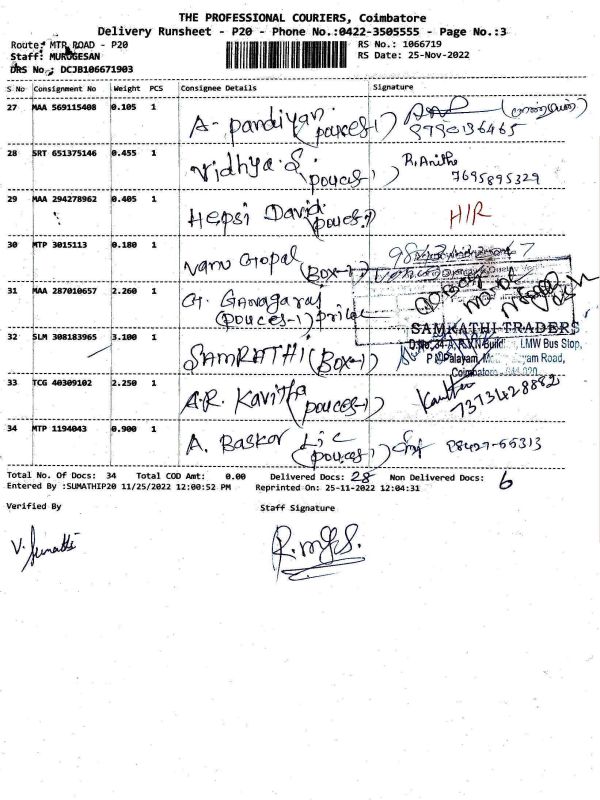 THE PROFESSIONAL COURIERS, Coimbatore
Delivery Runsheet - P20 - Phone No.:0422-3505555 - Page No.:3
Route: MTP ROAD - P20
RS No.: 1066719
Staff: MURUGESAN
RS Date: 25-Nov-2022
DRS No.: DCJB106671903
S No Consignment No Weight PCS Consignee Details Signature
27 MAA 569115408 0.105 1 A- Pandiyan (pouces-1)
28 SRT 651375146 0.455 1 Vidhya.S. (pouces-1) R.Anitha
7695895329
29 MAA 294278962 0.405 1 Hepsi David (pouces-1) H/R
30 MTP 3015113 0.180 1 Vanu Gopal (Box-1)
31 MAA 287010657 2.260 1 G. Ganagaraj
(pouces-1)
32 SLM 308183965 3.100 1 SAMRATHI (Box-1)
SAMRATHI TRADERS
LMW Bus Stop,
Palayam, Road,
Coimbatore
33 TCG 40309102 2.250 1 A.R. Kavitha (pouces-1) Kavitha
7373428882
34 MTP 1194043 0.900 1 A. Baskar Lic (pouces-1) 98427-65313
Total No. Of Docs: 34 Total COD Amt: 0.00 Delivered Docs: 28 Non Delivered Docs: 6
Entered By :SUMATHIP20 11/25/2022 12:00:52 PM Reprinted On: 25-11-2022 12:04:31
Verified By Staff Signature
V. Sumathi